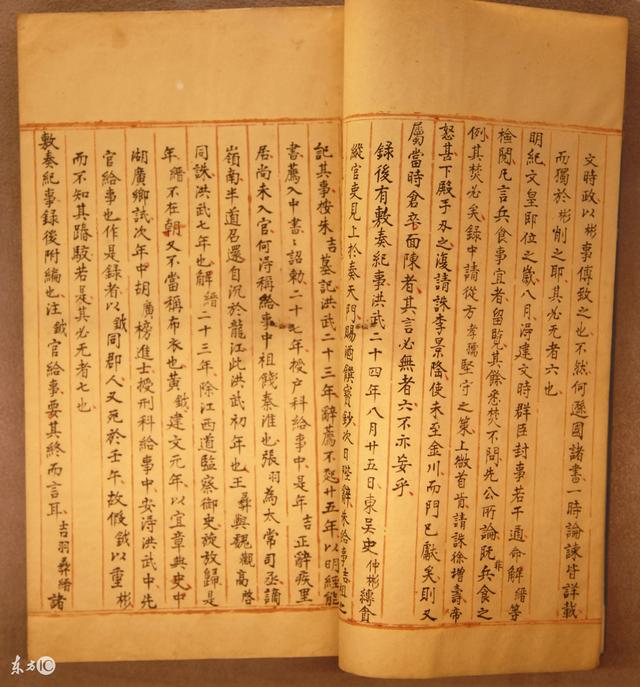 文時政以彬事傅致之也不然何遜國諸書一時論諫皆詳載
而獨於彬削之耶其必无者六也
明紀文皇即位之歲八月得建文時羣臣封事若干通命解縉等
檢閱凡言兵食事宜者留覽其餘悉焚不問先公所論既非兵食之
例其焚必矣録中請從方孝孺堅守之策上微首肯請誅徐增壽帝
怒甚下殿手刃之復請誅李景隆使未至金川而門已獻矣則又
屬當時倉卒面陳者其言必無者六不亦妄乎
録後有敷奏紀事洪武二十四年八月廿五日東吳史仲彬縛貪
縱官吏見上於奏天門賜酒饌寳鈔次日陛辭朱給事吉祖之
記其事按朱吉墓記洪武二十三年辭薦不起廿五年以明經能
書薦入中書書詔勅二十七年授户科給事中是年吉正辭疾里
居尚未入官何得稱給事中祖餞秦淮也張羽為太常司丞謫
嶺南半道召還自沉於龍江此洪武初年也王彝與魏觀高啓
同誅洪武七年也解縉二十三年除江西道監察御史旋放歸是
年縉不在朝又不當稱布衣也黄鉞建文元年以宜章典史中
湖廣鄉試次年中胡廣榜進士授刑科給事中安得洪武中先
官給事也作是録者以鉞同郡人又死於壬午故假鉞以重彬
而不知其踳駁若是其必无者七也
敷奏紀事録後附編也注鉞官給事要其終而言耳吉羽彝縉諸
东方IC